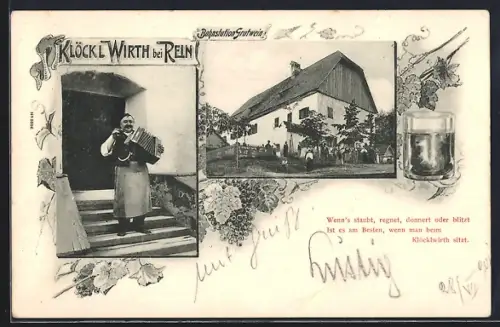 KLÖCKL WIRTH bei REIN
Bahnstation Gratwein
Wenn's staubt, regnet, donnert oder blitzt
Ist es am Besten, wenn man beim
Klöcklwirth sitzt.
mit Gruß